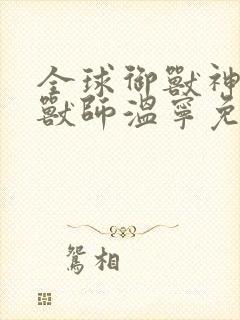 全球御獸神
獸師溫寧免
鴛相